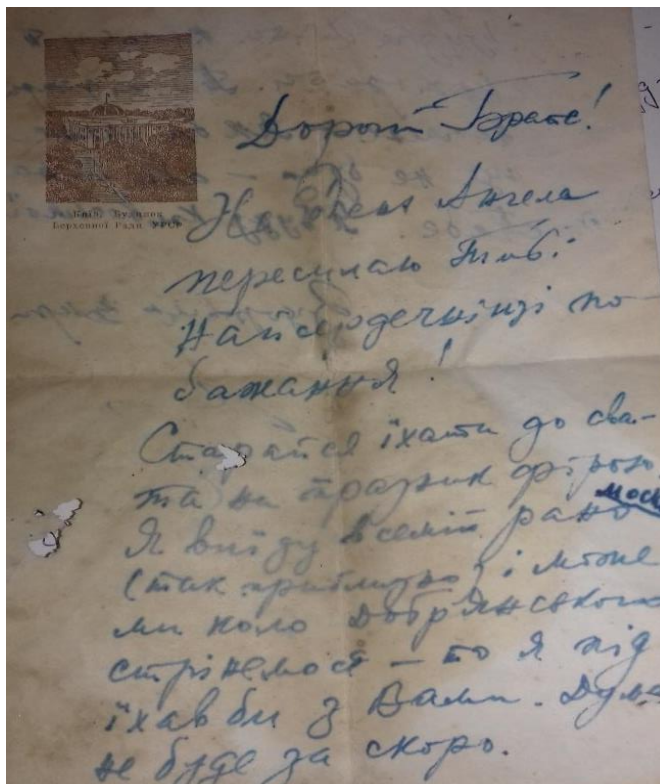 Київ. Будинок
Верховної Ради УРСР
Дорогий Брате!
На день Ангела
пересилаю Тобі
найсердечніщі по-
бажання!
Старайся їхати до сва-
та на празник фірою
Я виїду в семій рано
моск
(так приблизно) і може
ми коло Добрянського
стрінемося – то я під
їхав би з Вами. Дума
не буде за скоро.